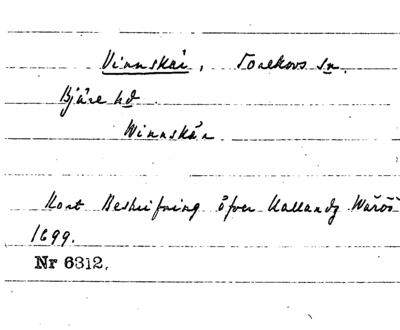 Vinnskär, Torekovs sn.
Bjäre hd
Winnskär
Kort Beskrifning öfver Hallandz Warös
1699.
Nr 6312.